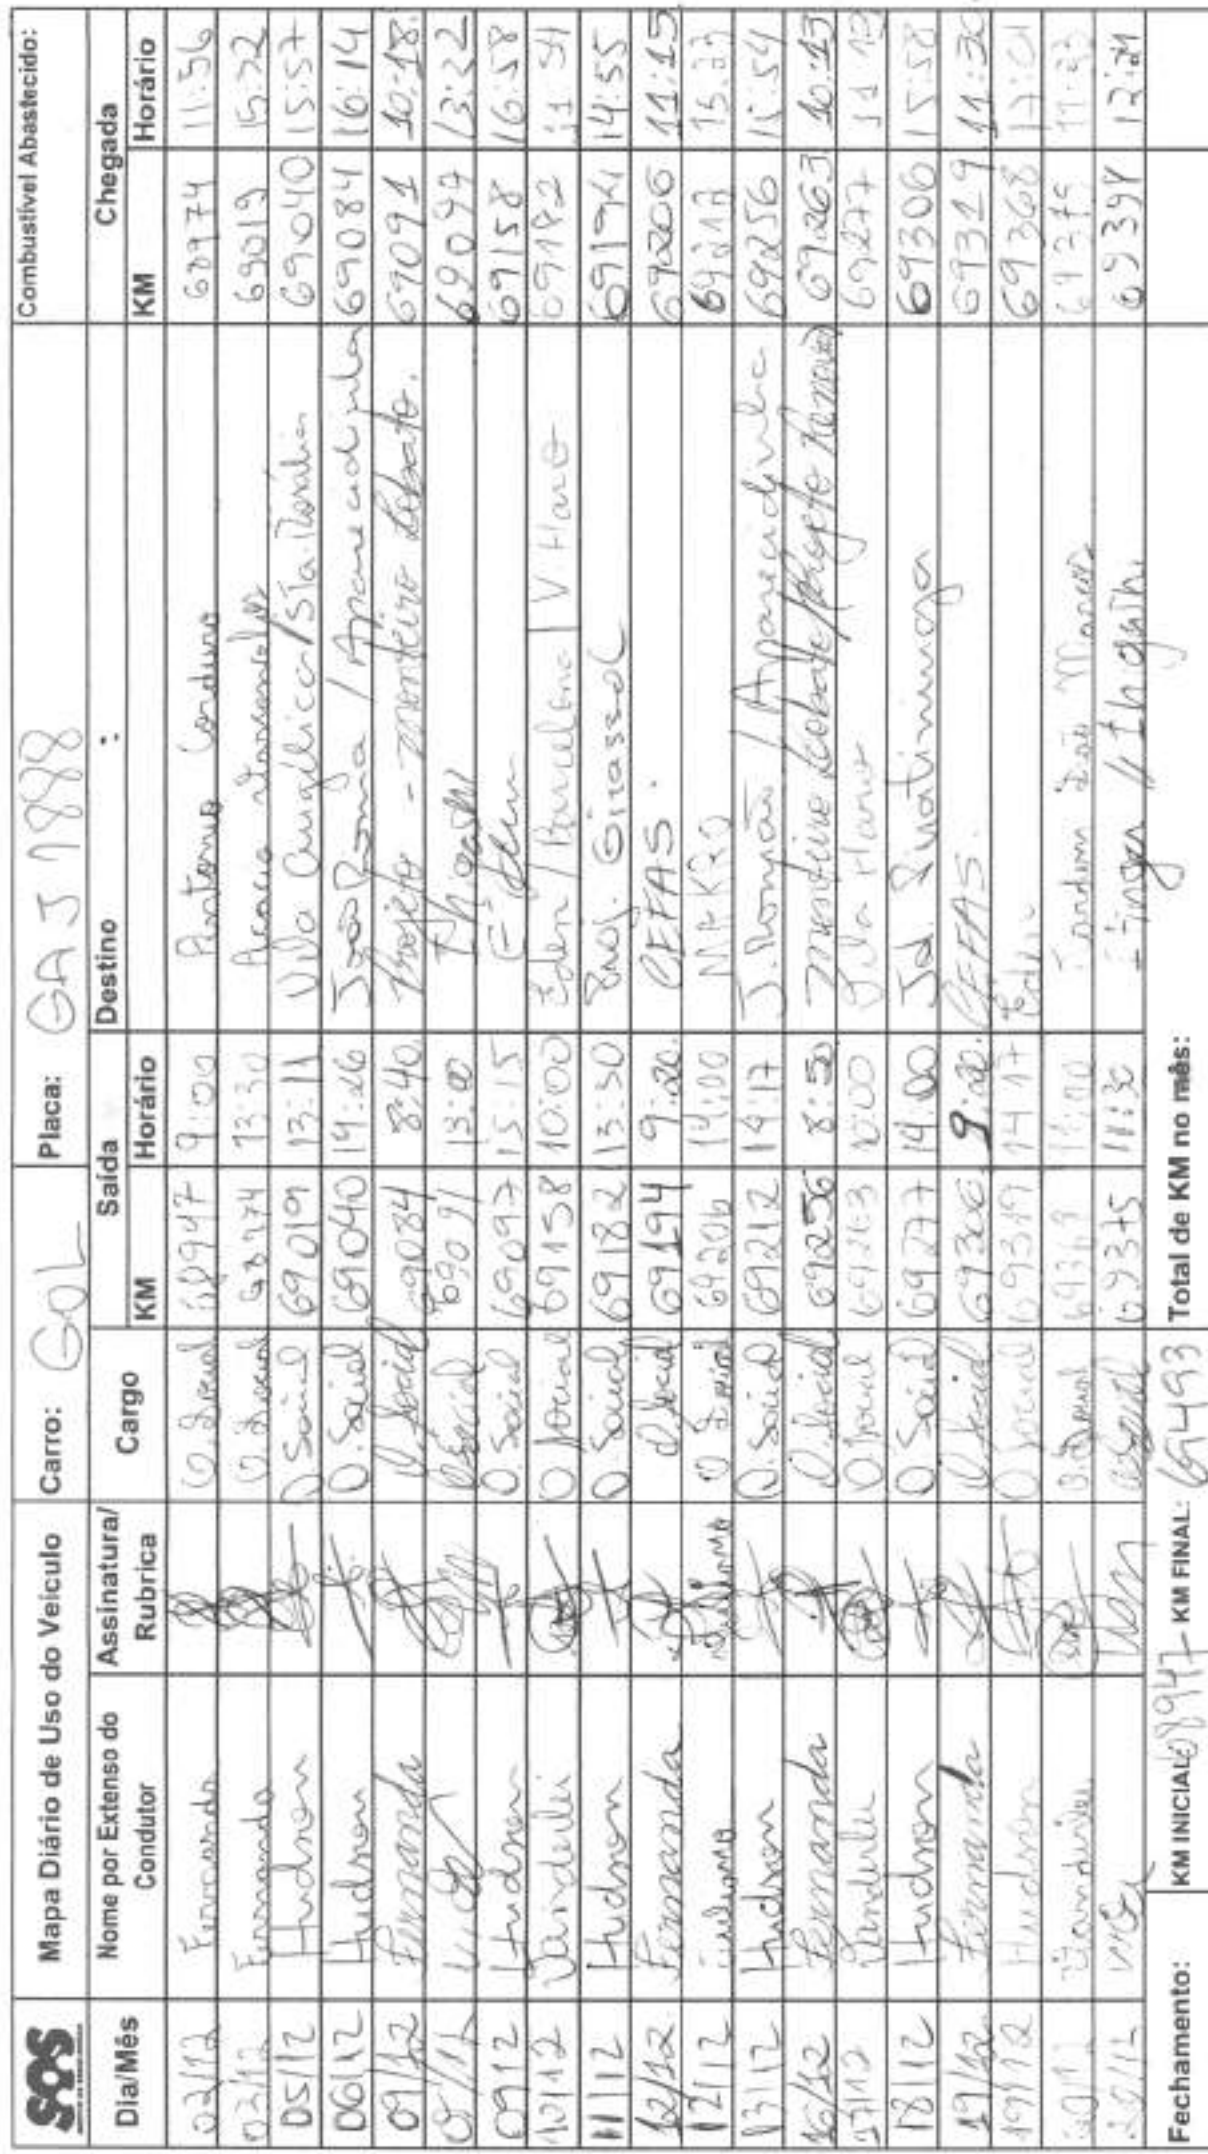 SOS Mapa Diário de Uso do Veículo Carro: GOL Placa: GAJ 7888 Combustível Abastecido:
Dia/Mês Nome por Extenso do Condutor Assinatura/Rubrica Cargo Saída Destino : Chegada
KM Horário KM Horário
02/12 Fernando O. Social 68947 9:00 Antonio Cordeiro 68974 11:56
02/12 Fernando O. Social 68974 13:30 Acacio 69019 15:22
05/12 Hudson O Social 69019 13:11 Vila Angélica/Sta. Rosália 69040 15:57
06/12 Hudson O. Social 69040 14:26 João Romão / Aparecidinha 69084 16:14
09/12 Fernanda O. Social 69084 8:40 Projeto - Monteiro Lobato. 69091 10:18
09/12 O Social 69091 13:00 69097 13:22
09/12 Hudson O. Social 69097 15:15 Éden 69158 16:58
10/12 Vanderlei O Social 69158 10:00 Éden / / V. Haro 69182 11:51
11/12 Hudson O Social 69182 13:30 Girassol 69194 14:55
12/12 Fernanda O Social 69194 9:20. CEFAS. 69206 11:15
12/12 O Social 69206 14:00 MAKRO 69212 15:23
13/12 Hudson O. Social 69212 14:17 J. Romão / Aparecidinha 69256 15:54
16/12 Fernanda O. Social 69256 8:50 Monteiro Lobato/Projeto 69263 10:13
17/12 Vanderlei O. Social 69263 10:00 Vila Haro 69277 11:13
18/12 Hudson O Social 69277 14:00 Jd. Ipiratininga 69306 15:58
19/12 Fernanda O Social 69306 9:20. CEFAS. 69319 11:30
19/12 Hudson O Social 69319 14:17 Éden 69368 17:01
Vanderlei O Social 69368 Jardim 69375 11:23
69375 11:30 69398 12:21
Fechamento: KM INICIAL 68947 KM FINAL: 69493 Total de KM no mês: